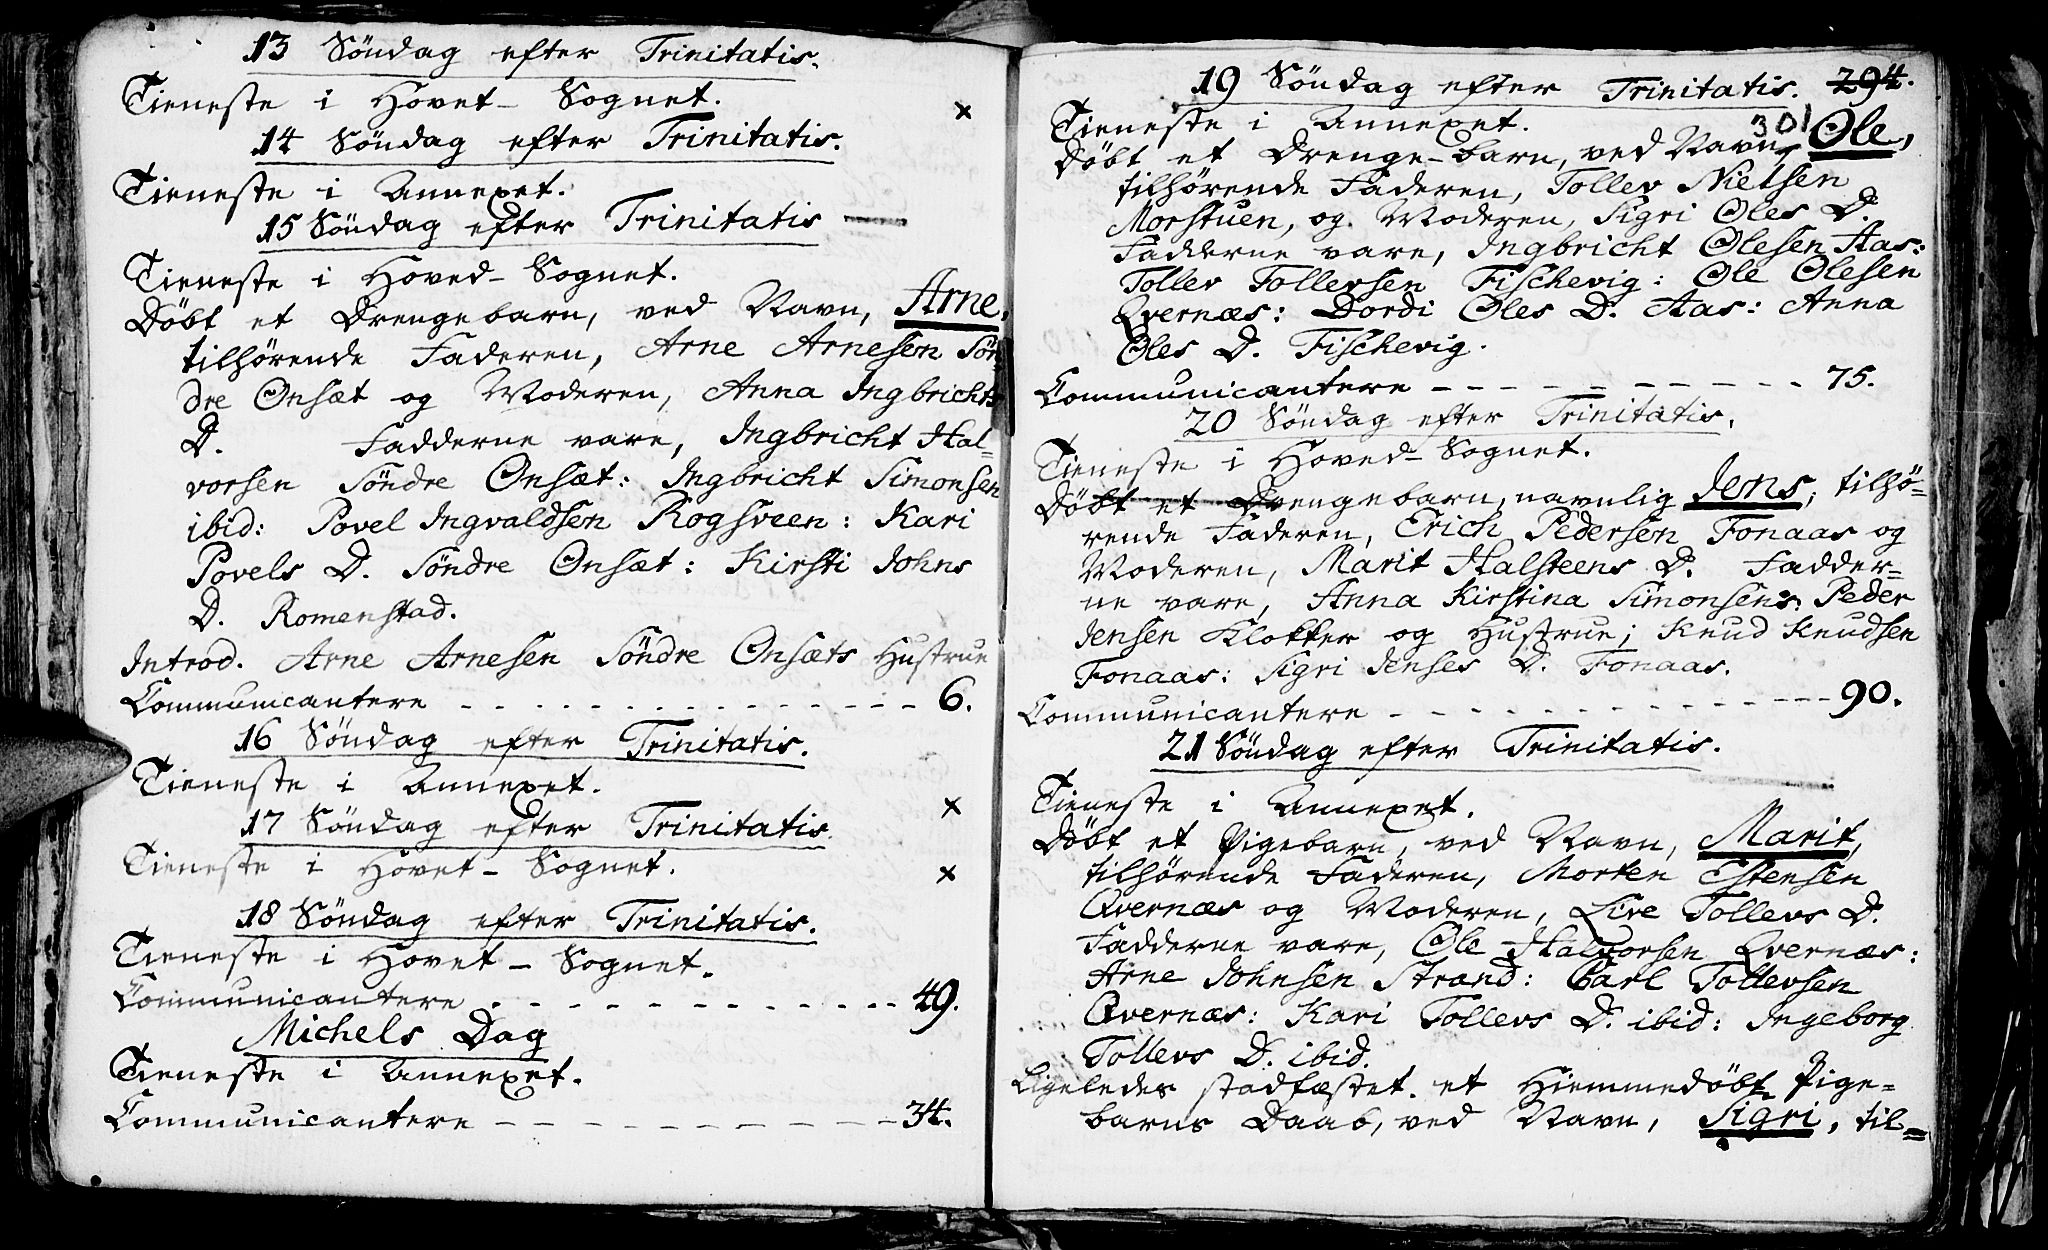 13 Söndag efter Trinitatis.
Tieneste i Hovet-Sognet.
14 Söndag efter Trinitatis.
Tieneste i Annexet.
15 Söndag efter Trinitatis
Tieneste i Hoved-Sognet.
Döbt et Drengebarn, ved Navn, Arne,
tilhörende Faderen, Arne Arnesen Sön-
dre Onsæt og Moderen, Anna Ingbrichts
D. Fadderne vare, Ingbricht Hal-
vorsen Söndre Onsæt: Ingbricht Simonsen
ibid: Povel Ingvaldsen Rogsveen: Kari
Povels D. Söndre Onsæt: Kirsti Johns
D. Romenstad.
Introd. Arne Arnesen Söndre Onsæts Hustrue
Communicantere - - - 6.
16 Söndag efter Trinitatis.
Tieneste i Annexet.
17 Söndag efter Trinitatis.
Tieneste i Hovet-Sognet.
18 Söndag efter Trinitatis.
Tieneste i Hovet-Sognet.
Communicantere - - - 49.
Michels Dag
Tieneste i Annexet.
Communicantere - - - 34.
19 Söndag efter Trinitatis. 294.
301
Tieneste i Annexet.
Döbt et Drenge-barn, ved Navn, Ole,
tilhörende Faderen, Tollev Nielsen
Morstuen, og Moderen, Sigri Oles D.
Fadderne vare, Ingbricht Olesen Aas:
Tollev Tollevsen Fischevig: Ole Olesen
Qvernæs: Dordi Oles D. Aas: Anna
Oles D. Fischevig.
Communicantere - - - 75.
20 Söndag efter Trinitatis.
Tieneste i Hoved-Sognet.
Döbt et Drengebarn, navnlig Jens, tilhö-
rende Faderen, Erich Pedersen Fonaas og
Moderen, Marit Halsteens D. Fadder-
ne vare, Anna Kirstina Simonsens: Peder
Jensen Klokker og Hustrue; Knud Knudsen
Fonaas: Sigri Jenses D. Fonaas.
Communicantere - - - 90.
21 Söndag efter Trinitatis.
Tieneste i Annexet.
Döbt et Pigebarn, ved Navn, Marit,
tilhörende Faderen, Morten Estensen
Qvernæs og Moderen, Live Tollevs D.
Fadderne vare, Ole Halvorsen Qvernæs:
Arne Johnsen Strand: Carl Tollevsen
Qvernæs: Kari Tollevs D. ibid: Ingeborg
Tollevs D. ibid.
Ligeledes stadfæstet et Hiemmedöbt Pige-
barns Daab, ved Navn, Sigri, til-